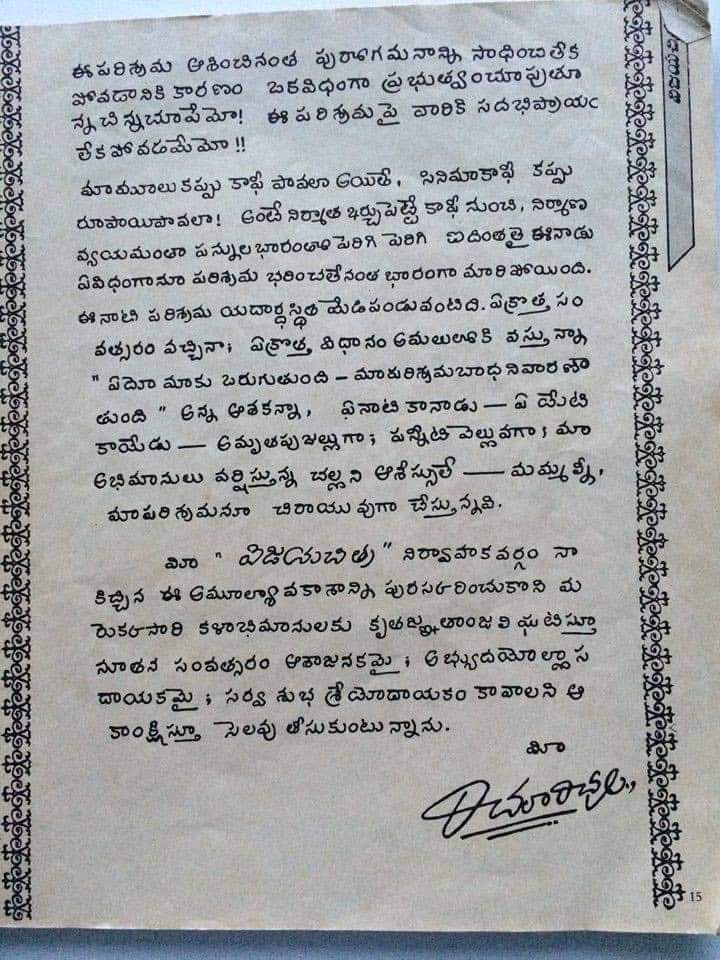 ఈ పరిశ్రమ ఆశించినంత పురోగమనాన్ని సాధించలేక
పోవడానికి కారణం ఒకవిధంగా ప్రభుత్వంచూపుతూ
న్నచిన్నచూపేమో! ఈ పరిశ్రమపై వారికి సదభిప్రాయం
లేకపోవడమేమో!!
మామూలుకప్పు కాఫీ పావలా అయితే, సినిమాకాఫీ కప్పు
రూపాయిపావలా! అంటే నిర్మాత ఖర్చుపెట్టే కాఫీ నుంచి, నిర్మాణ
వ్యయమంతా పన్నులభారంతో పెరిగి పెరిగి ఐదింతలై ఈనాడు
ఏవిధంగానూ పరిశ్రమ భరించలేనంత భారంగా మారిపోయింది.
ఈనాటి పరిశ్రమ యదార్ధస్థితి మేడిపండువంటిది. ఏక్రొత్త సం
వత్సరం వచ్చినా; ఏక్రొత్త విధానం అమలులోకి వస్తున్నా
"ఏదో మాకు ఒరుగుతుంది – మాపరిశ్రమబాధ నివారణౌ
తుంది" అన్న ఆశకన్నా, ఏనాటి కానాడు — ఏ యేటి
కాయేడు — అమృతపుజల్లుగా; పన్నీటి వెల్లువగా; మా
అభిమానులు వర్షిస్తున్న చల్లని ఆశీస్సులే — మమ్మల్నీ,
మాపరిశ్రమనూ చిరాయువుగా చేస్తున్నవి.
మీ "విజయచిత్ర" నిర్వాహకవర్గం నా
కిచ్చిన ఈ అమూల్యావకాశాన్ని పురస్కరించుకొని మ
రొకసారి కళాభిమానులకు కృతజ్ఞతాంజలి ఘటిస్తూ
నూతన సంవత్సరం ఆశాజనకమై; అభ్యుదయోల్లాస
దాయకమై; సర్వ శుభ శ్రేయోదాయకం కావాలని ఆ
కాంక్షిస్తూ సెలవు తీసుకుంటున్నాను.
మీ
15